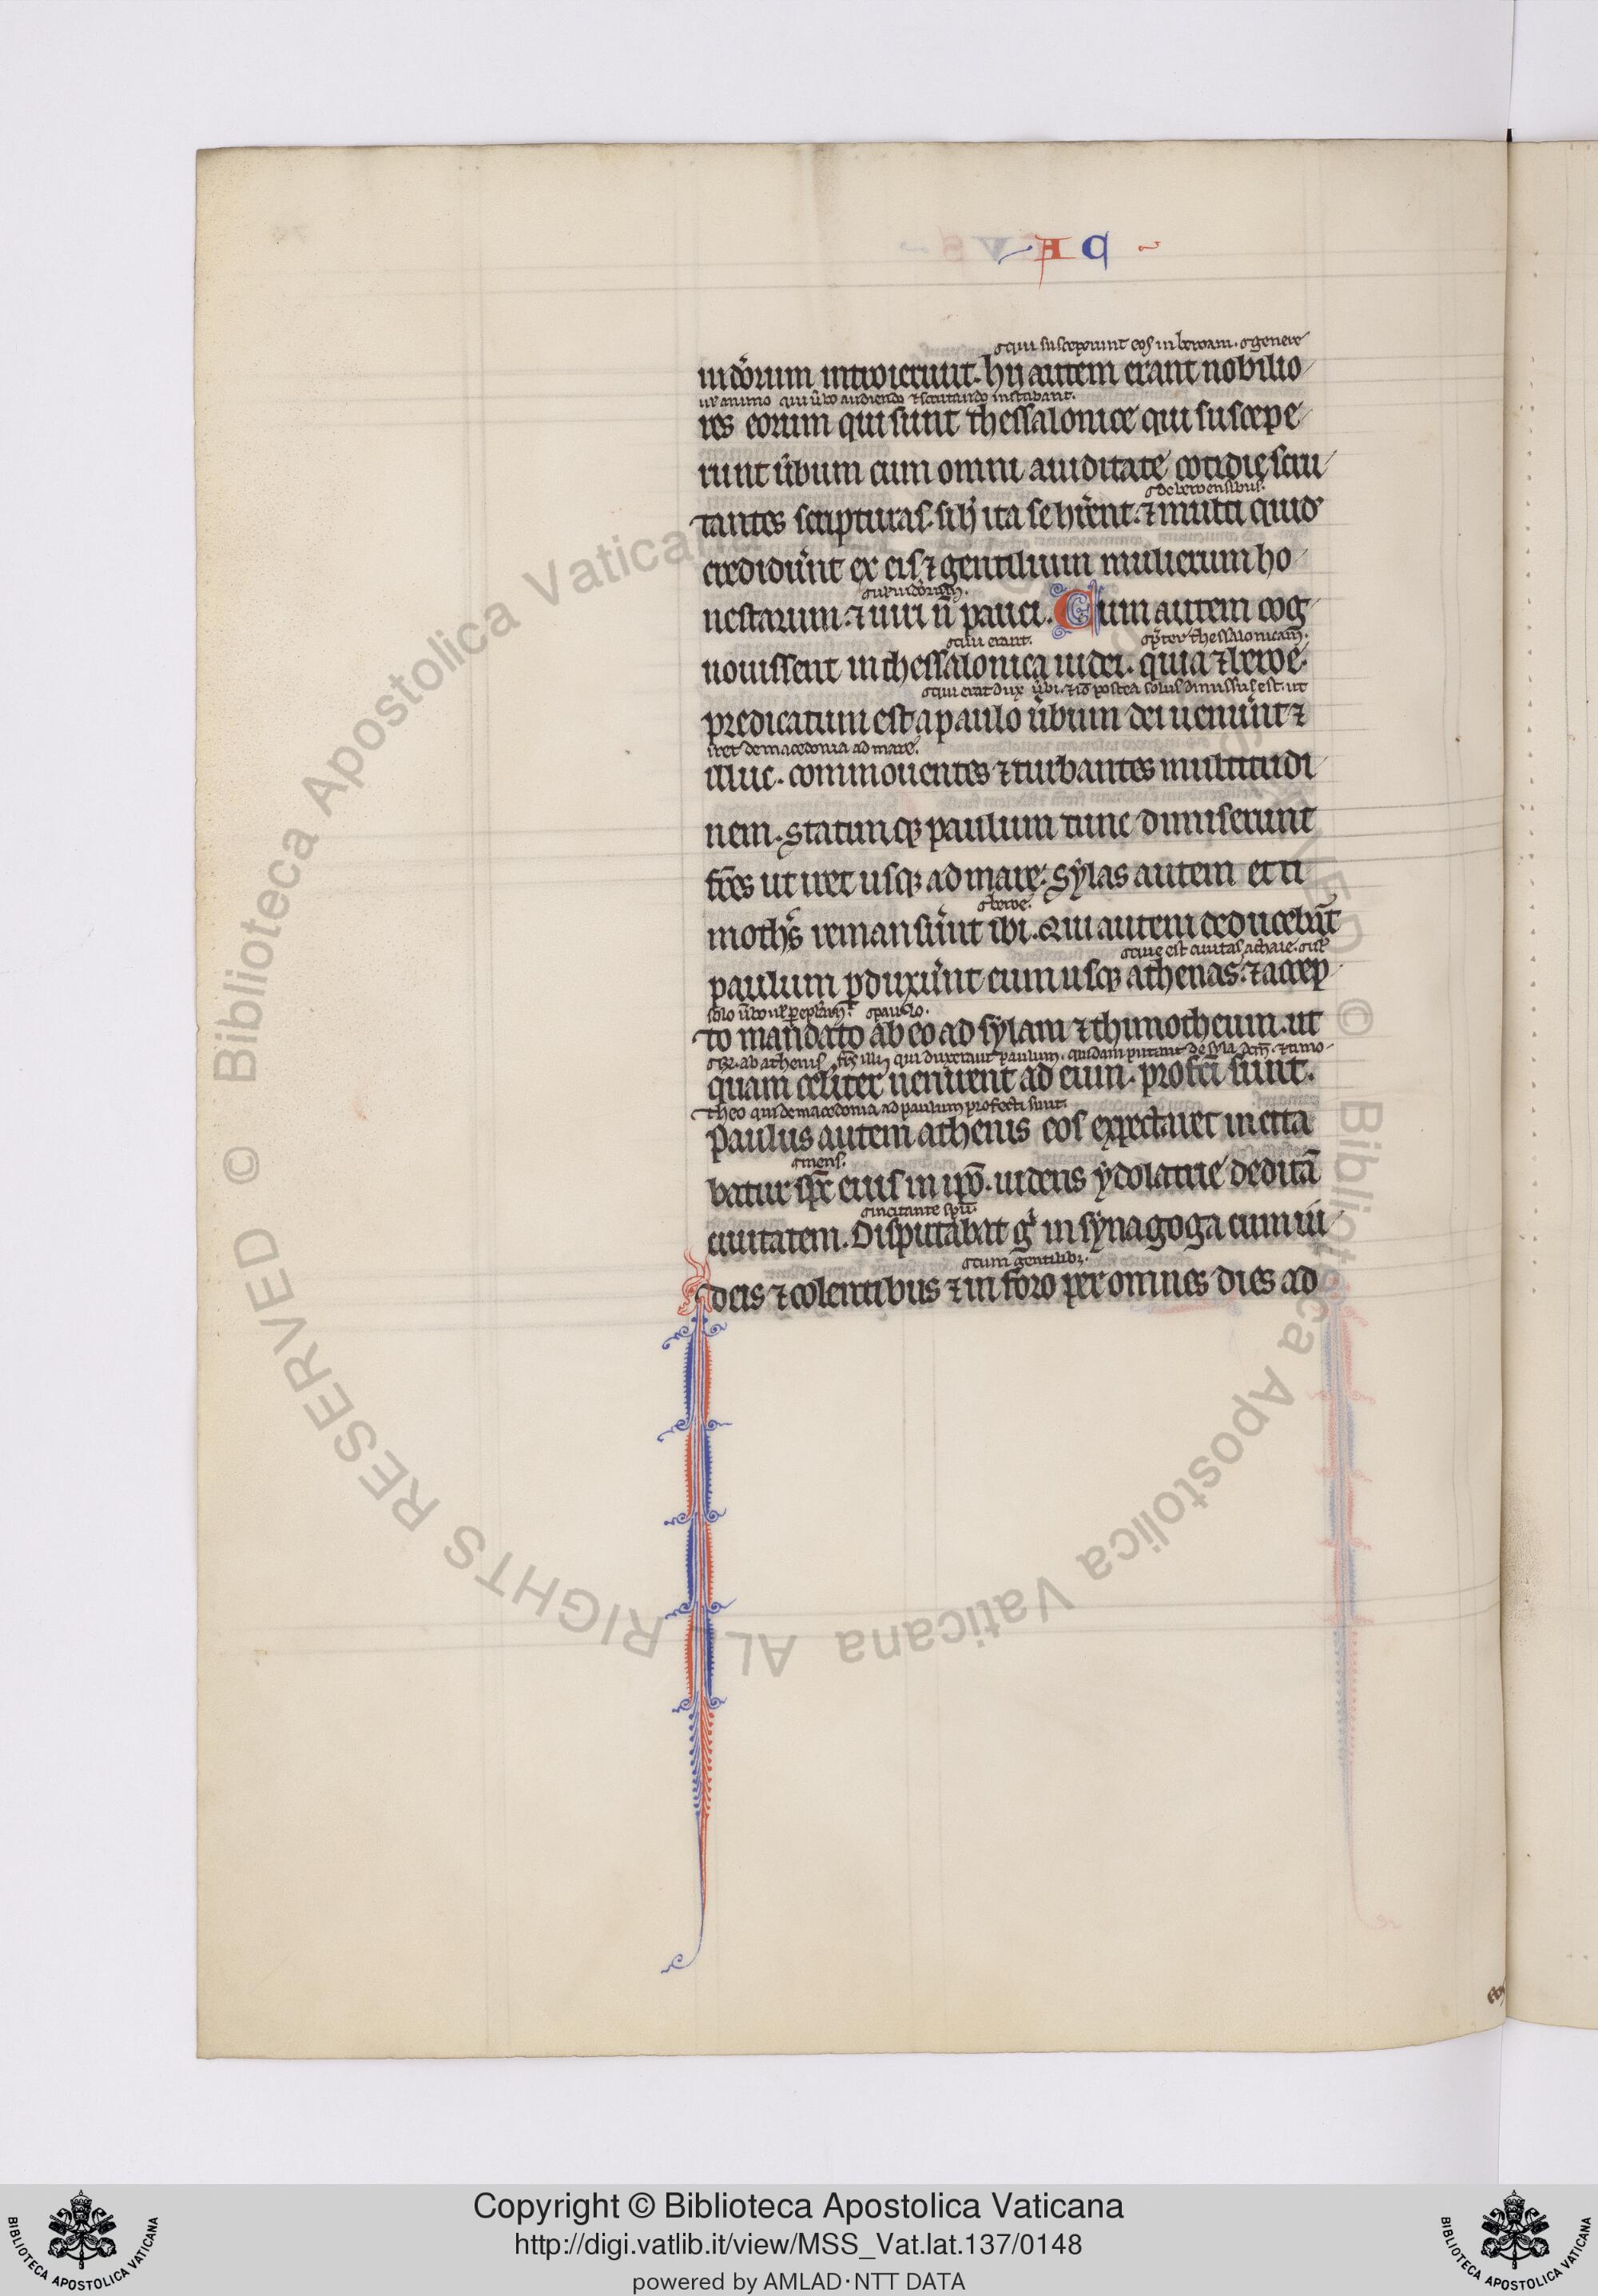 AC
qui susceperunt eos in beroam. genere
iudeorum introierunt. hii autem erant nobilio
uel animo qui uerbo audiendo et scrutando instabant.
res eorum qui sunt thessalonice qui suscepe
runt ũbum cum omni auiditate cotidie scru
de beroensibus.
tantes scripturas. si hͨ ita se hr̃ent. ⁊ multi quidͦ
crediderũt ex eis ⁊ gentilium mulierum ho
uel iudeorum.
nestarum. ⁊ uiri ñ pauci. Cum autem cog
qui erant. preter thessalonicam.
nouissent in thessalonica iudei. quia ⁊ beroe.
qui erat dux ũbi. ⁊ iõ postea solus dimissus est. ut
predicatum est a paulo ũbum dei uenerũt ⁊
iret de macedonia ad mare.
illuc. commouentes ⁊ turbantes multitudi
nem. Statimq; paulum tunc dimiserunt
fr̃es ut iret usq; ad mare. Sylas autem et ti
beroe.
moth's remanserũt ibi. Qui autem deducebãt
que est ciuitas achaie.
paulum ꝑduxerũt eum usq; athenas. ⁊ accep
solo ũbo uel per epl̃am. paulo.
to mandato ab eo ad sylam ⁊ thimotheum. ut
ab athenis fr̃es illi qui duxerant paulum. quidam putant de syla dcm̃. ⁊ timo
quam celˀiter uenirent ad eum. profcĩ sunt.
theo qui de macedonia ad paulum profecti sunt.
Paulus autem athenis eos expectaret incita
mens.
batur sp̃c eius in ip̃o. uidens ydolatrie deditã
incitante sp̃u.
ciuitatem. Disputabat gͥ in synagoga cum iu
cum gentilibꝫ.
deis ⁊ colentibus ⁊ in foro per omnes dies ad
Copyright © Biblioteca Apostolica Vaticana
http://digi.vatlib.it/view/MSS_Vat.lat.137/0148
powered by AMLAD·NTT DATA
BIBLIOTECA APOSTOLICA VATICANA
BIBLIOTECA APOSTOLICA VATICANA
© Biblioteca Apostolica Vaticana
© Biblioteca Apostolica Vaticana ALL RIGHTS RESERVED